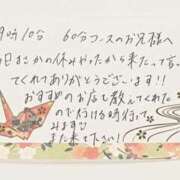 時10分 60分コースのお兄様へ
日まさかの休みやったから来たって言っ
てくれてありがとうございます!!
おすすめのお店も教えてくれた
ので行ける時行って
みます
また来て下さい!